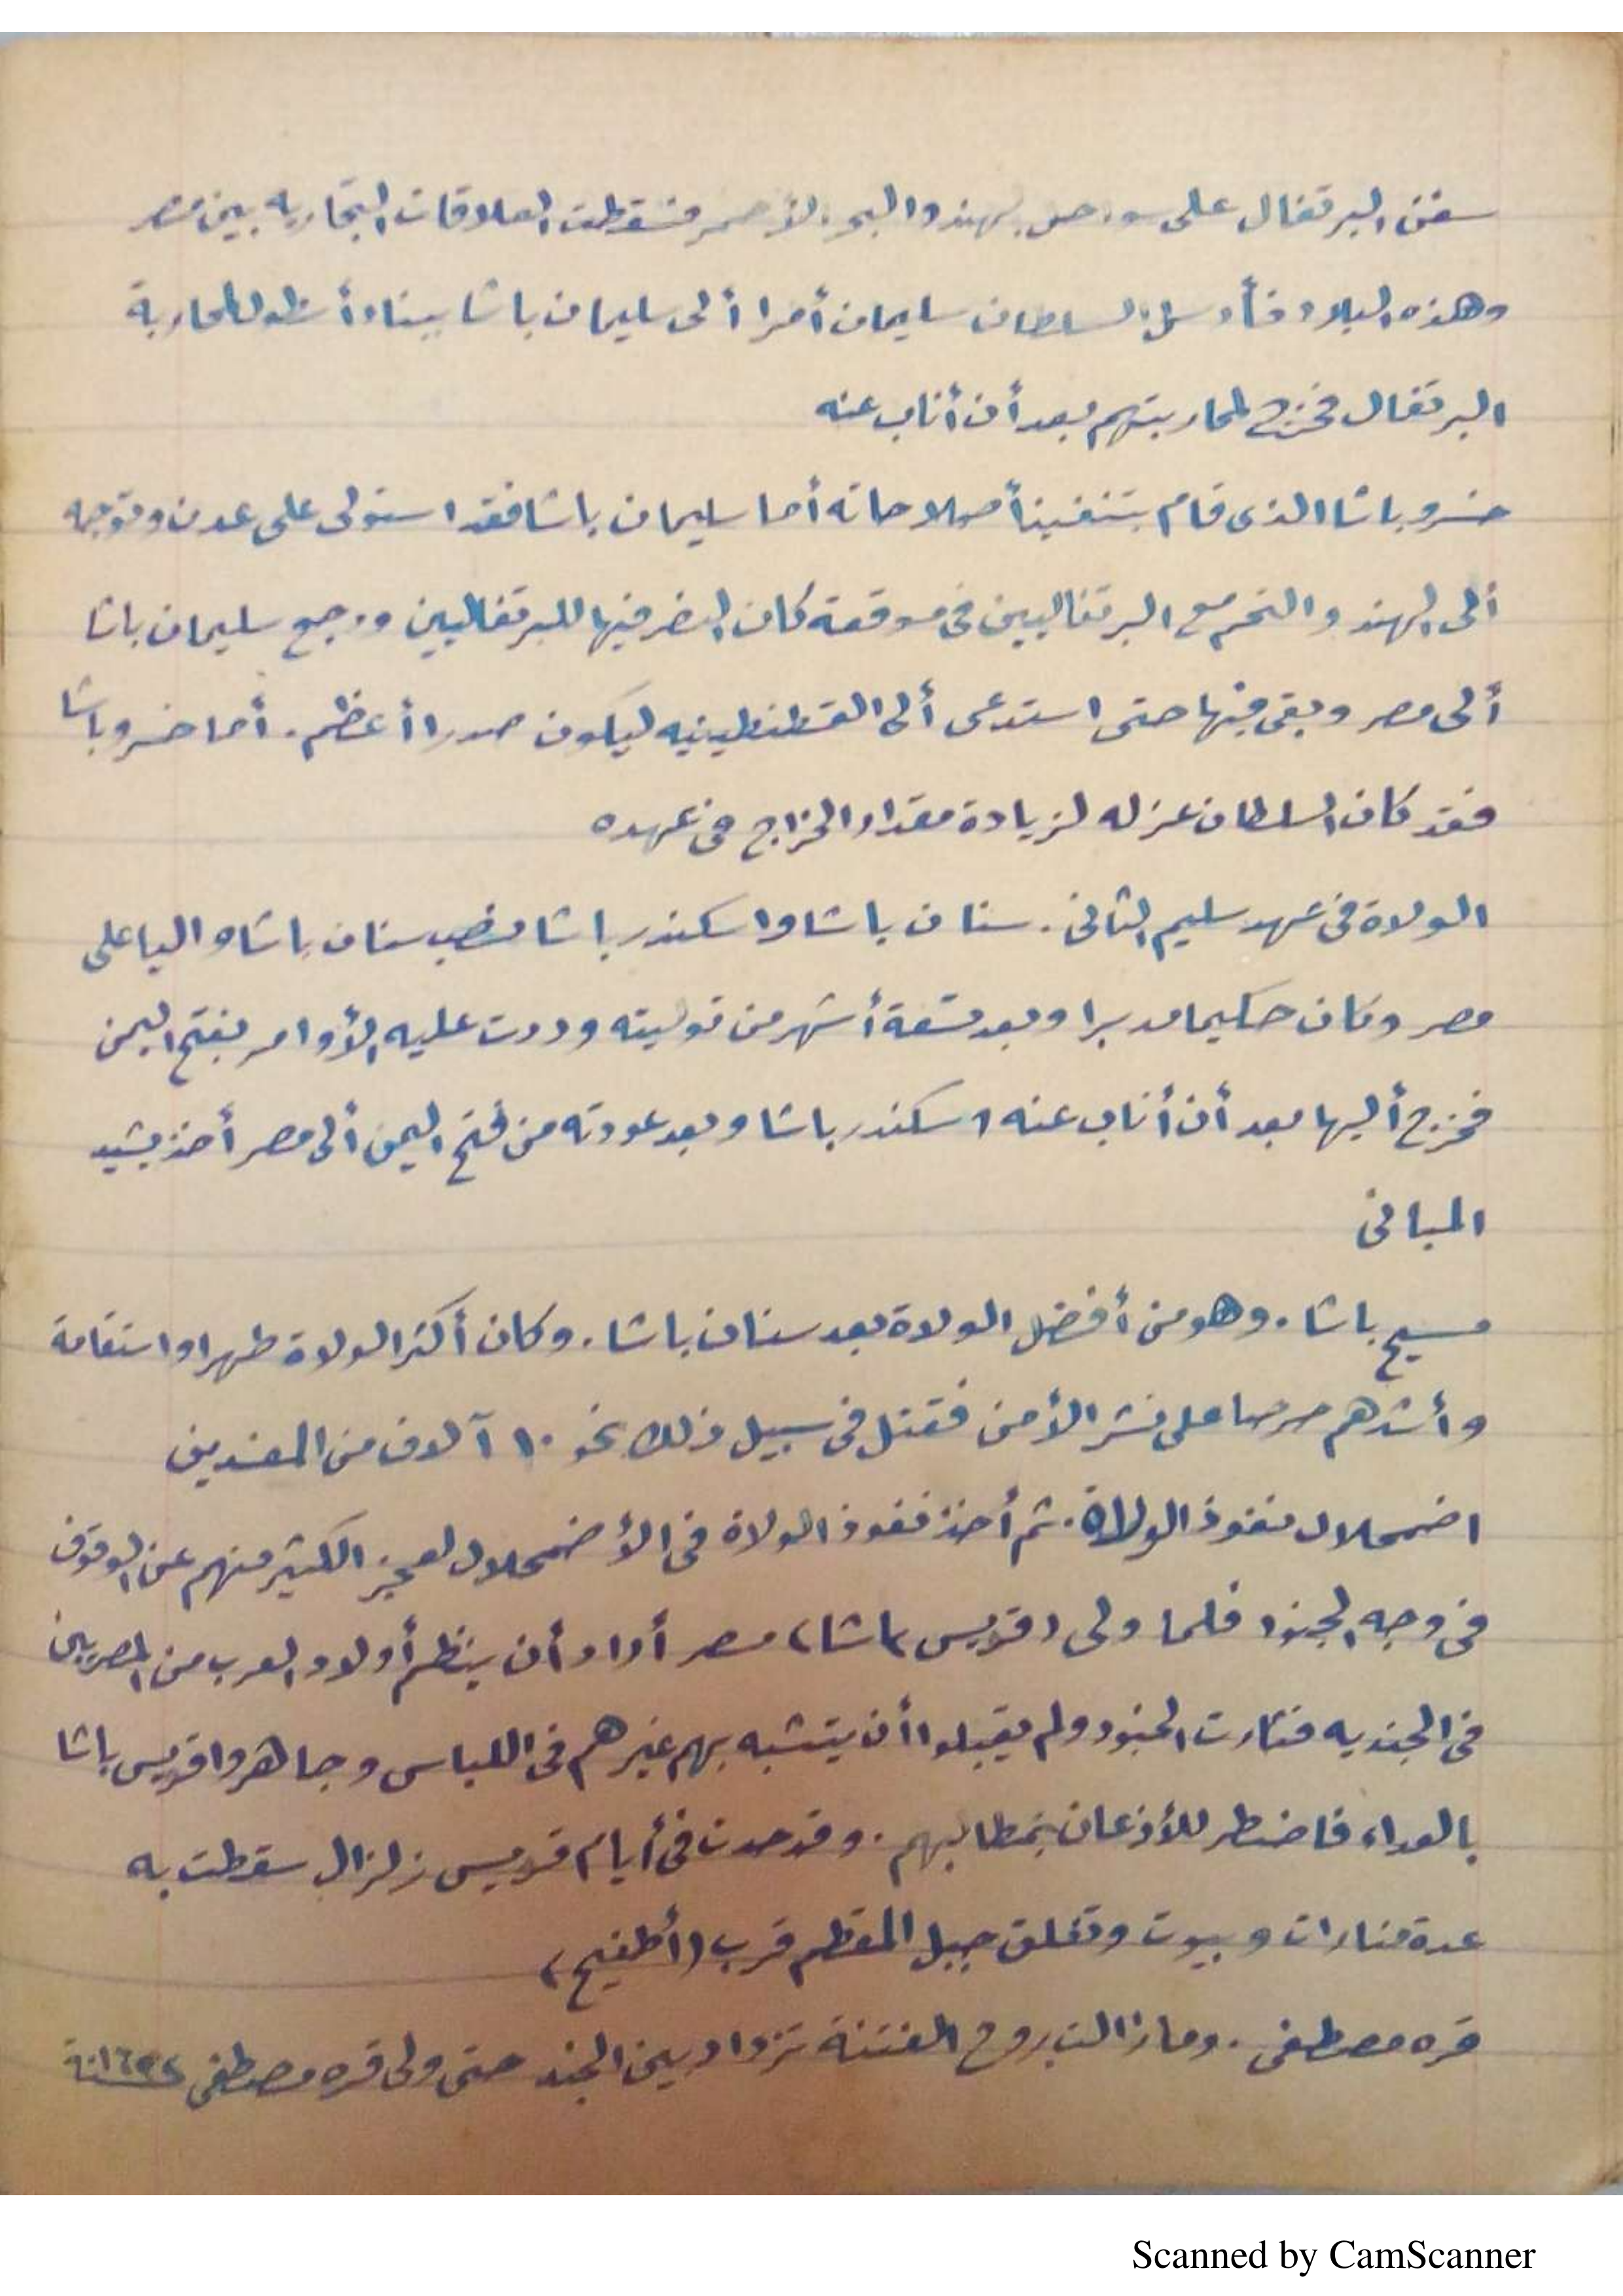 سفن البرتغال على سواحل الهند والبحر الأحمر فسقطت العلاقات التجاريه بين مصر
وهذه البلاد فأرسل السلطان سليمان أمرا ألى سليمان باشا ببناء أسطول لمحاربة
البرتغال فخرج لمحاربتهم بعد أن أناب عنه
خسرو باشا الذى قام بتنفيذ أصلاحاته أما سليمان باشا فقد استولى على عدن وتوجه
ألى الهند والتحم مع البرتغاليين فى موقعة كان النصر فيها للبرتغاليين ورجع سليمان باشا
ألى مصر وبقى فيها حتى استدعى ألى القسطنطينيه ليكون صدرا أعظم. أما خسرو باشا
فقد كان السلطان عزله لزيادة مقدار الخراج فى عهده
الولاة فى عهد سليم الثانى. سنان باشا واسكندر باشا فنصب سنان باشا واليا على
مصر وكان حكيما مدبرا وبعد تسعة أشهر من توليته وردت عليه الأوامر بفتح اليمن
فخرج أليها بعد أن أناب عنه اسكندر باشا وبعد عودته من فتح اليمن ألى مصر أخذ يشيد
المبانى
مسيح باشا. وهو من أفضل الولاة بعد سنان باشا. وكان أكثر الولاة طهرا واستقامة
وأشدهم حرصا على نشر الأمن فقتل فى سبيل ذلك نحو ١٠ آلاف من المفسدين
اضمحلال نفوذ الولاة. ثم أخذ نفوذ الولاة فى الأضمحلال لعجز الكثير منهم عن الوقوف
فى وجه الجنود فلما ولى (قويس باشا) مصر أراد أن ينظم أولاد العرب من المصريين
فى الجنديه فثارت الجنود ولم يقبلوا أن يتشبه بهم غيرهم فى اللباس وجاهروا قويس باشا
بالعداء فاضطر للأذعان بمطالبهم. وقد حدث فى أيام قويس زلزال سقطت به
عدة منارات وبيوت وتفلق جبل المقطم قرب (أطفيح)
قره مصطفى. وما زالت روح الفتنة تزداد بين الجند حتى ولى قره مصطفى
Scanned by CamScanner